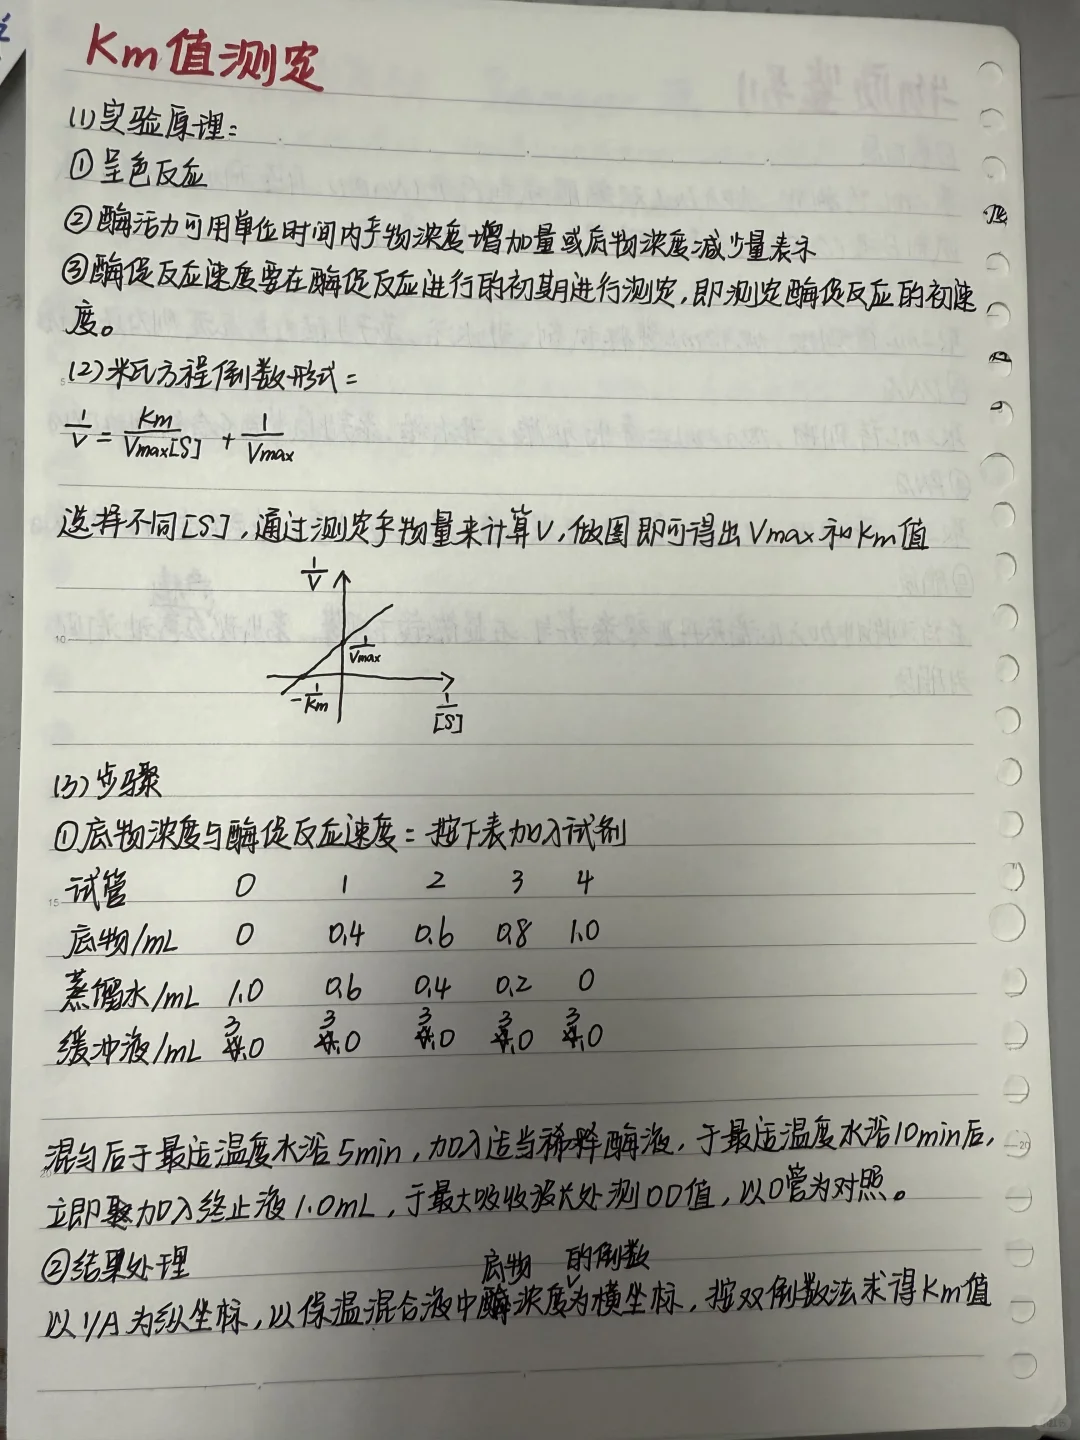 Km值测定
(1)实验原理:
①呈色反应
②酶活力可用单位时间内产物浓度增加量或底物浓度减少量表示
③酶促反应速度要在酶促反应进行的初期进行测定,即测定酶促反应的初速
度。
(2)米氏方程倒数形式:
1/V = Km/Vmax[S] + 1/Vmax
选择不同[S],通过测定产物量来计算V,做图即可得出Vmax和Km值
1/V
1/Vmax
-1/Km
1/[S]
(3)步骤
①底物浓度与酶促反应速度:按下表加入试剂
试管 0 1 2 3 4
底物/mL 0 0.4 0.6 0.8 1.0
蒸馏水/mL 1.0 0.6 0.4 0.2 0
缓冲液/mL 3.0 3.0 3.0 3.0 3.0
混匀后于最适温度水浴5min,加入适当稀释酶液,于最适温度水浴10min后,
立即加入终止液1.0mL,于最大吸收波长处测OD值,以0管为对照。
②结果处理
以1/A为纵坐标,以保温混合液中底物浓度的倒数为横坐标,按双倒数法求得Km值